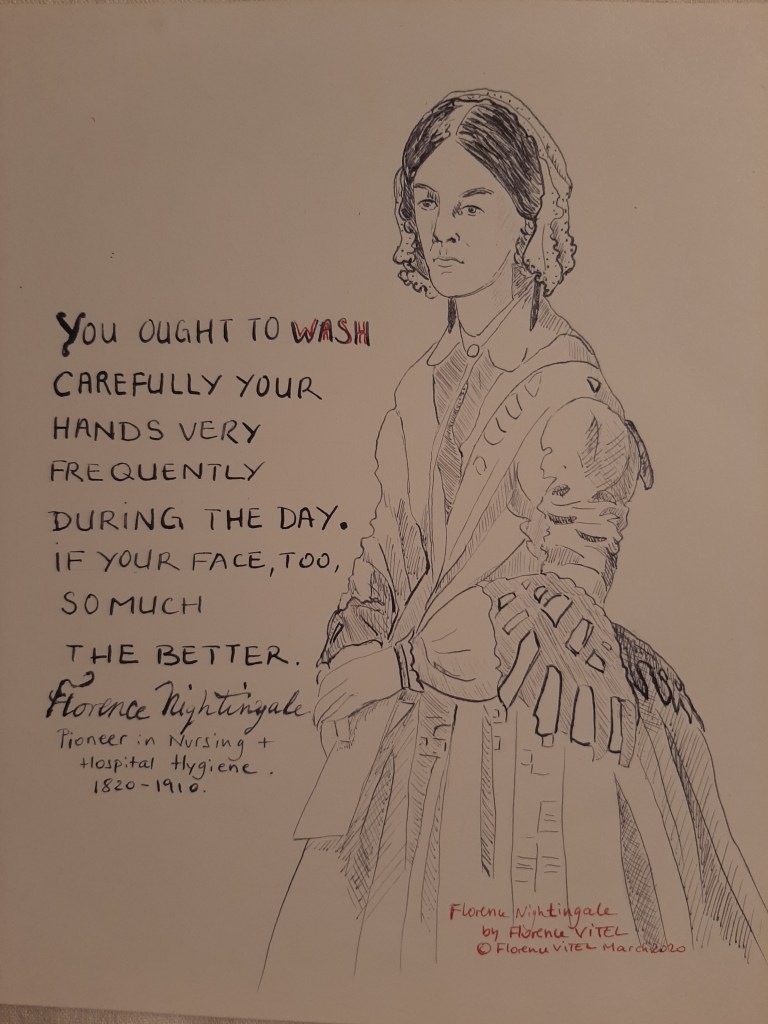 YOU OUGHT TO WASH
CAREFULLY YOUR
HANDS VERY
FREQUENTLY
DURING THE DAY.
IF YOUR FACE, TOO,
SO MUCH
THE BETTER.
Florence Nightingale
Pioneer in Nursing +
Hospital Hygiene.
1820-1910.
Florence Nightingale
by Florence ViTEL
© Florence ViTEL March 2020